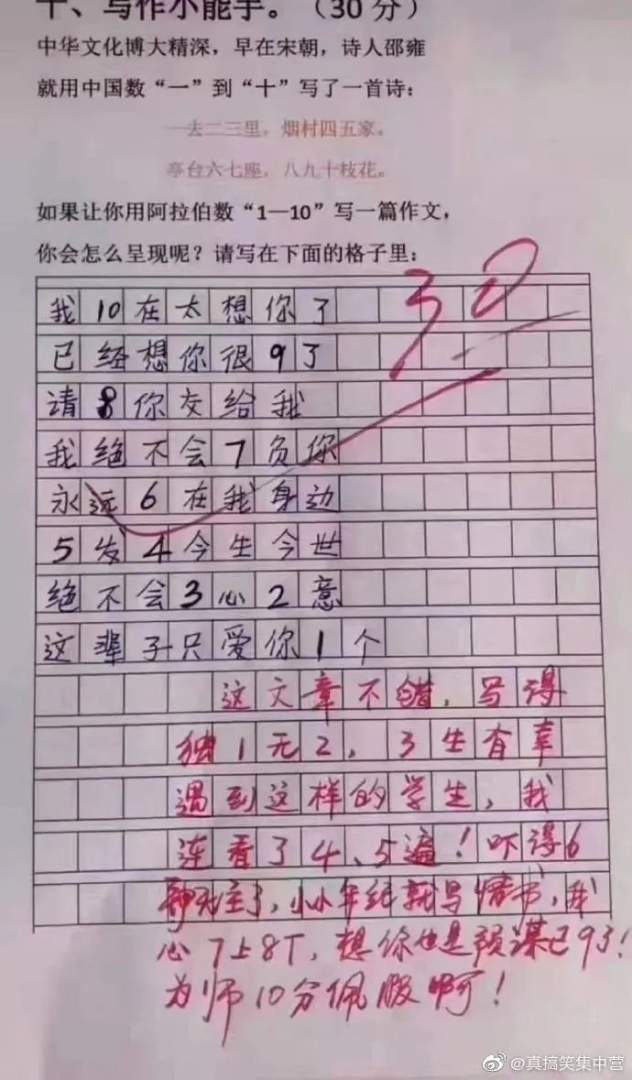 十、写作小能手。（30 分）
中华文化博大精深，早在宋朝，诗人邵雍
就用中国数“一”到“十”写了一首诗：
一去二三里，烟村四五家。
亭台六七座，八九十枝花。
如果让你用阿拉伯数“1—10”写一篇作文，
你会怎么呈现呢？请写在下面的格子里：
30
我10在太想你了
已经想你很9了
请8你交给我
我绝不会7负你
永远6在我身边
5发4今生今世
绝不会3心2意
这辈子只爱你1个
这文章不错，写得
独1无2，3生有幸
遇到这样的学生，我
连看了4、5遍！吓得6
神无主了，小小年纪就写情书，我
心7上8下，想你也是预谋已9了！
为师10分佩服啊！
@真搞笑集中营